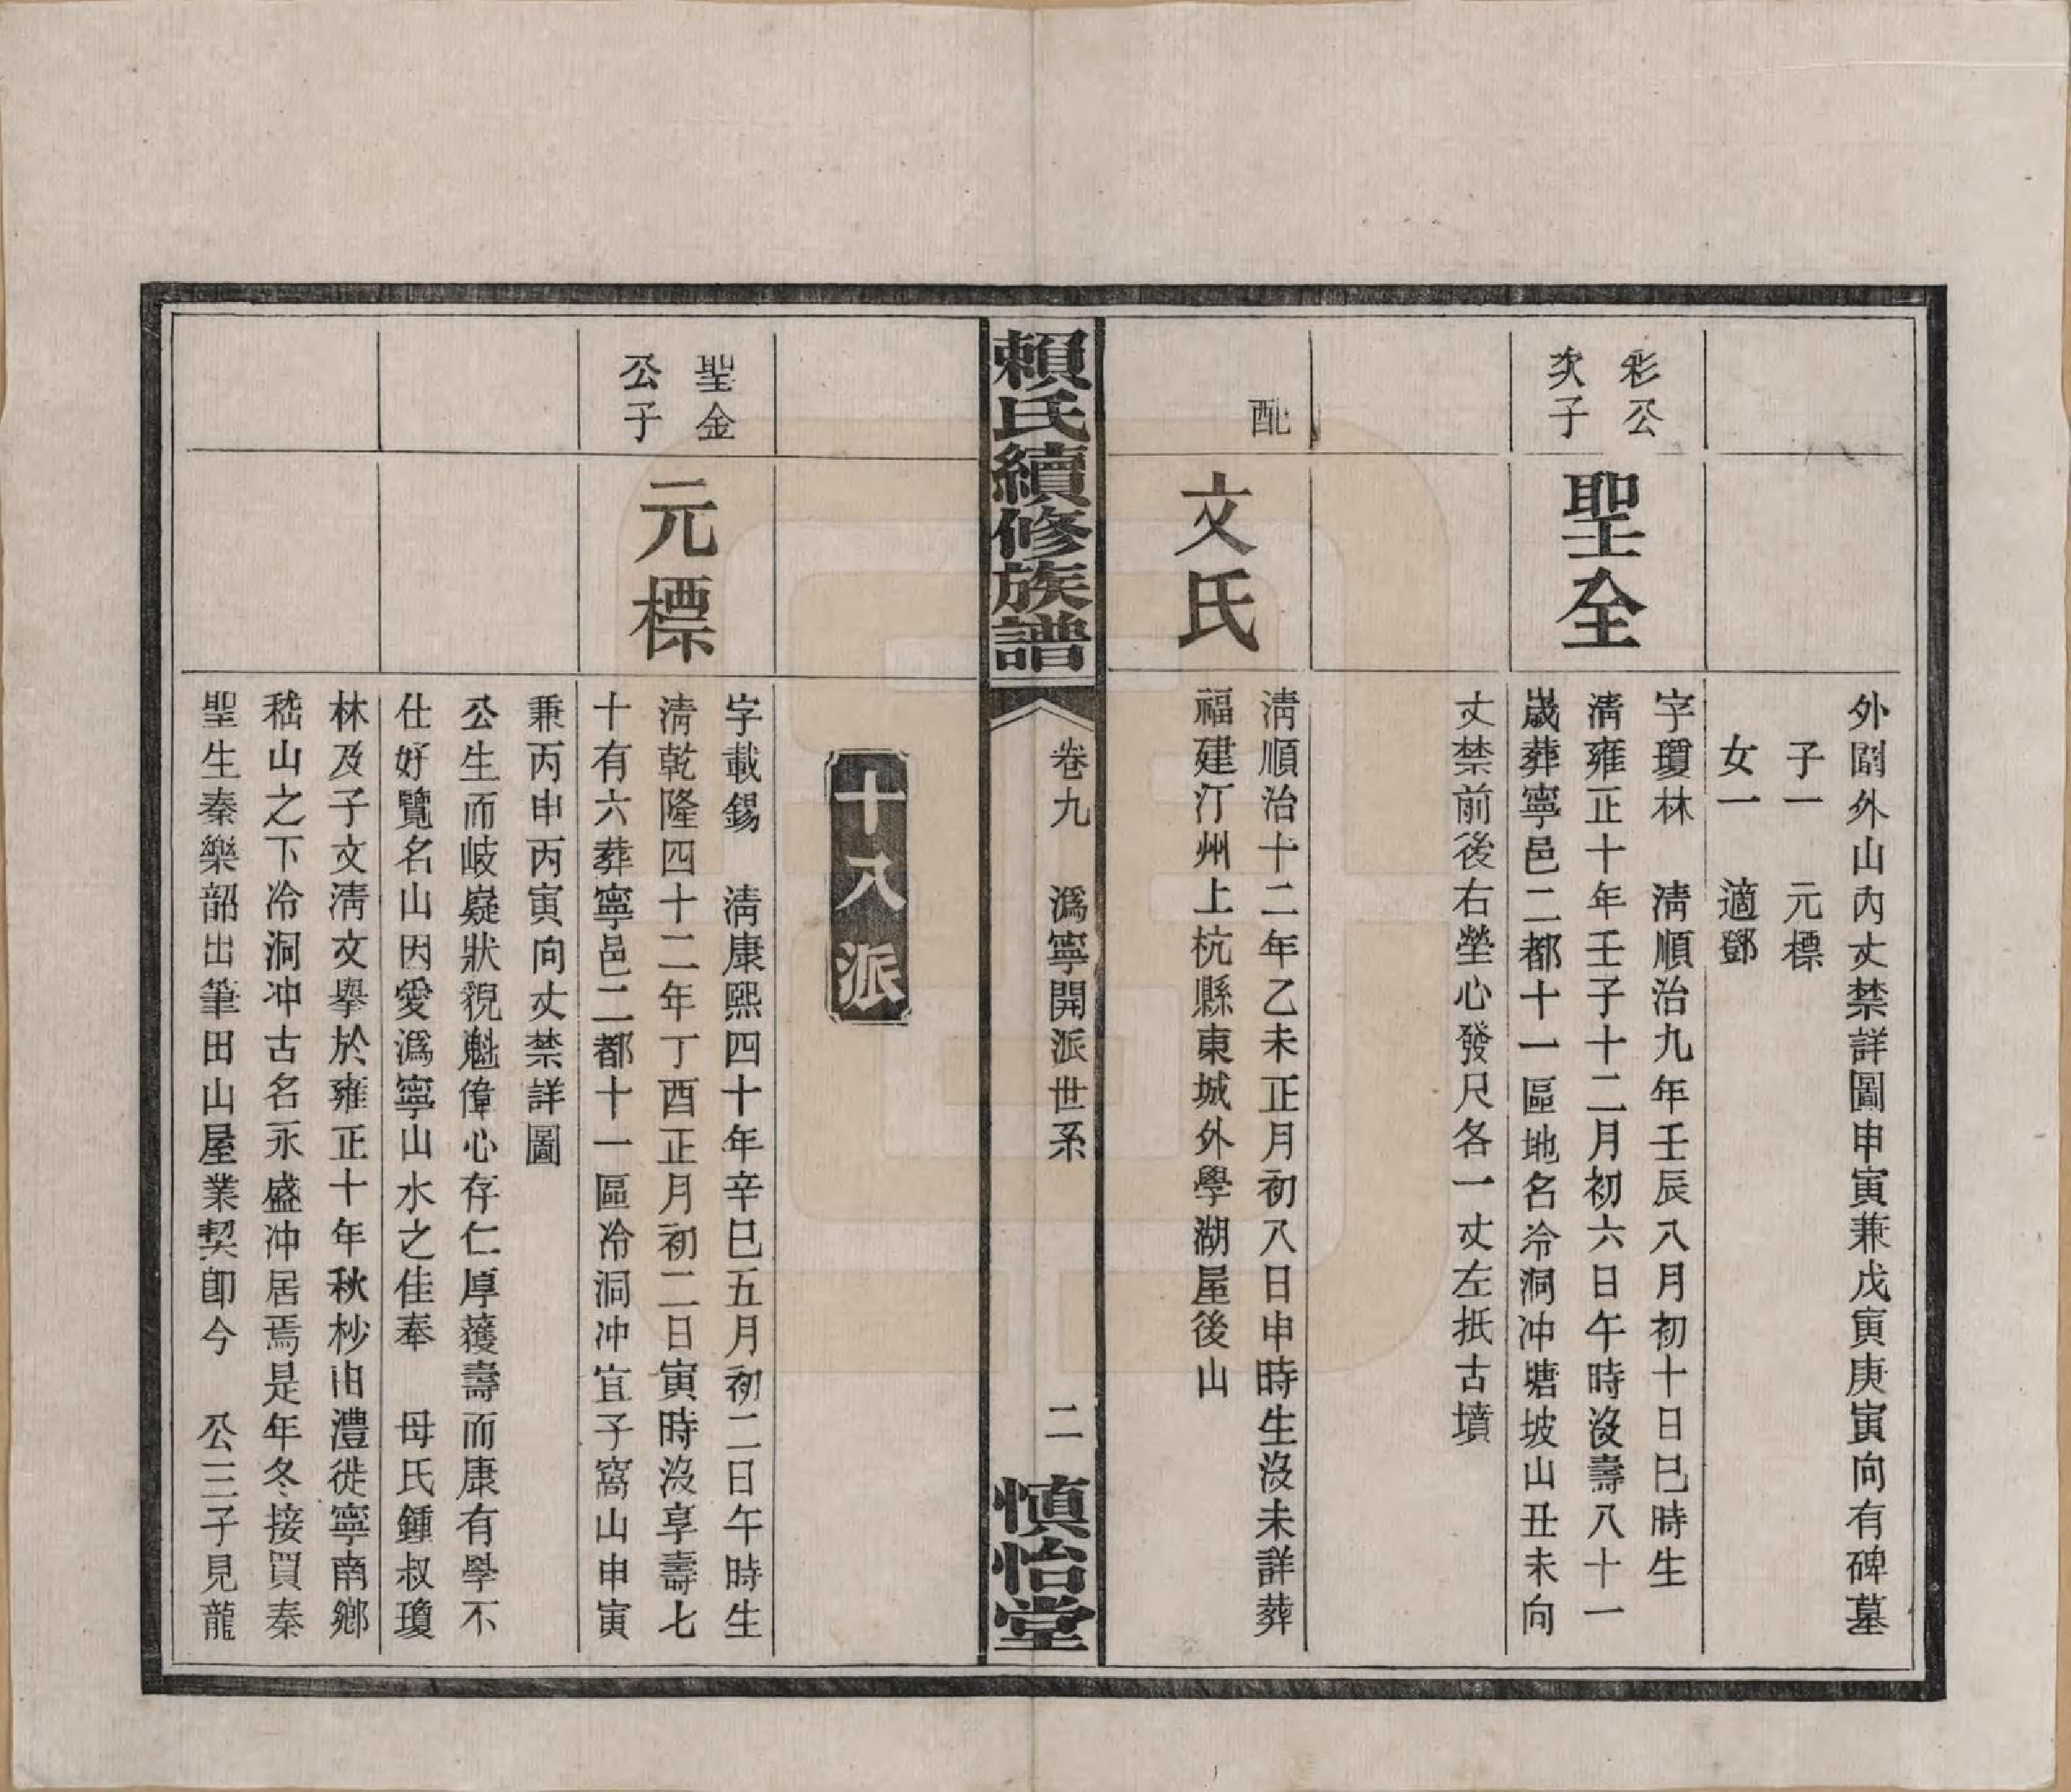 外圖外山內丈禁詳圖申寅兼戊寅庚寅向有碑墓
子一　元標
女一　適鄧
彩公
次子
聖全
字瓊林　淸順治九年壬辰八月初十日巳時生
淸雍正十年壬子十二月初六日午時沒壽八十一
歲葬寧邑二都十一區地名冷洞冲塘坡山丑未向
丈禁前後右塋心發尺各一丈左抵古墳
配
文氏
淸順治十二年乙未正月初八日申時生沒未詳葬
福建汀州上杭縣東城外學湖屋後山
賴氏續修族譜
卷九　溈寧開派世系
二
慎怡堂
十八派
聖金
公子
元標
字載錫　淸康熙四十年辛巳五月初二日午時生
淸乾隆四十二年丁酉正月初二日寅時沒享壽七
十有六葬寧邑二都十一區冷洞冲宜子窩山申寅
兼丙申丙寅向丈禁詳圖
公生而岐嶷狀貌魁偉心存仁厚獲壽而康有學不
仕好覽名山因愛溈寧山水之佳奉　母氏鍾叔瓊
林及子文淸文擧於雍正十年秋杪由澧徙寧南鄕
嵇山之下冷洞冲古名永盛冲居焉是年冬接買秦
聖生秦樂韶出筆田山屋業契卽今　公三子見龍